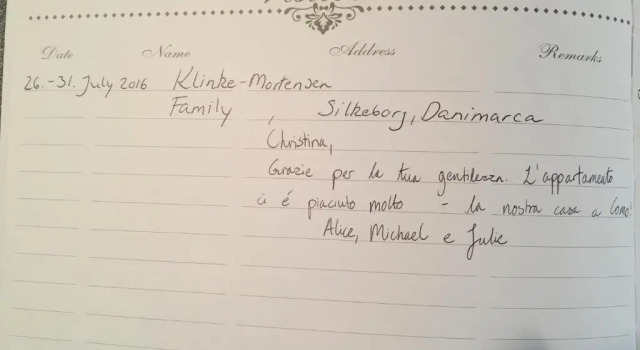 Date Name Address Remarks
26.-31. July 2016 Klinke-Mortensen
Family , Silkeborg, Danimarca
Christina,
Grazie per la tua gentilezza. L'appartamento
ci é piaciuto molto - la nostra casa a Como!
Alice, Michael e Julie